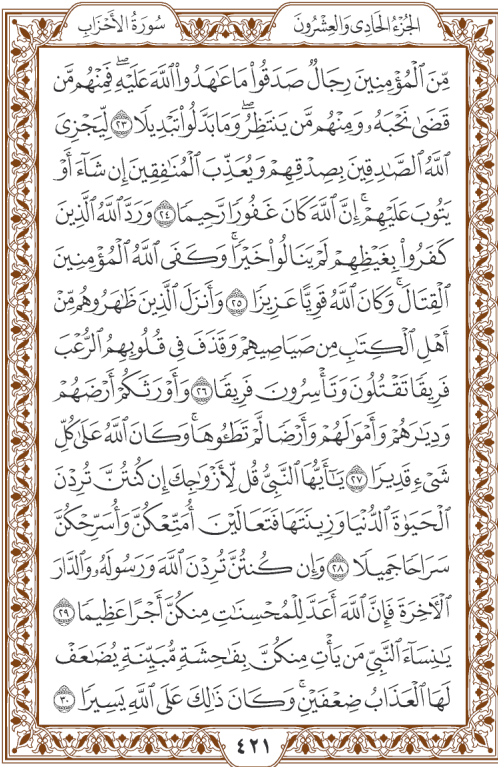 الجُزْءُ الحَادِى وَالعِشْرُونَ
سُورَةُ الأَحْزَابِ
مِّنَ ٱلْمُؤْمِنِينَ رِجَالٌ صَدَقُوا۟ مَا عَٰهَدُوا۟ ٱللَّهَ عَلَيْهِ ۖ فَمِنْهُم مَّن
قَضَىٰ نَحْبَهُۥ وَمِنْهُم مَّن يَنتَظِرُ ۖ وَمَا بَدَّلُوا۟ تَبْدِيلًا ٢٣ لِّيَجْزِىَ
ٱللَّهُ ٱلصَّٰدِقِينَ بِصِدْقِهِمْ وَيُعَذِّبَ ٱلْمُنَٰفِقِينَ إِن شَآءَ أَوْ
يَتُوبَ عَلَيْهِمْ ۚ إِنَّ ٱللَّهَ كَانَ غَفُورًا رَّحِيمًا ٢٤ وَرَدَّ ٱللَّهُ ٱلَّذِينَ
كَفَرُوا۟ بِغَيْظِهِمْ لَمْ يَنَالُوا۟ خَيْرًا ۚ وَكَفَى ٱللَّهُ ٱلْمُؤْمِنِينَ
ٱلْقِتَالَ ۚ وَكَانَ ٱللَّهُ قَوِيًّا عَزِيزًا ٢٥ وَأَنزَلَ ٱلَّذِينَ ظَٰهَرُوهُم مِّنْ
أَهْلِ ٱلْكِتَٰبِ مِن صَيَاصِيهِمْ وَقَذَفَ فِى قُلُوبِهِمُ ٱلرُّعْبَ
فَرِيقًا تَقْتُلُونَ وَتَأْسِرُونَ فَرِيقًا ٢٦ وَأَوْرَثَكُمْ أَرْضَهُمْ
وَدِيَٰرَهُمْ وَأَمْوَٰلَهُمْ وَأَرْضًا لَّمْ تَطَـُٔوهَا ۚ وَكَانَ ٱللَّهُ عَلَىٰ كُلِّ
شَىْءٍ قَدِيرًا ٢٧ يَٰٓأَيُّهَا ٱلنَّبِىُّ قُل لِّأَزْوَٰجِكَ إِن كُنتُنَّ تُرِدْنَ
ٱلْحَيَوٰةَ ٱلدُّنْيَا وَزِينَتَهَا فَتَعَالَيْنَ أُمَتِّعْكُنَّ وَأُسَرِّحْكُنَّ
سَرَاحًا جَمِيلًا ٢٨ وَإِن كُنتُنَّ تُرِدْنَ ٱللَّهَ وَرَسُولَهُۥ وَٱلدَّارَ
ٱلْءَاخِرَةَ فَإِنَّ ٱللَّهَ أَعَدَّ لِلْمُحْسِنَٰتِ مِنكُنَّ أَجْرًا عَظِيمًا ٢٩
يَٰنِسَآءَ ٱلنَّبِىِّ مَن يَأْتِ مِنكُنَّ بِفَٰحِشَةٍ مُّبَيِّنَةٍ يُضَٰعَفْ
لَهَا ٱلْعَذَابُ ضِعْفَيْنِ ۚ وَكَانَ ذَٰلِكَ عَلَى ٱللَّهِ يَسِيرًا ٣٠
٤٢١